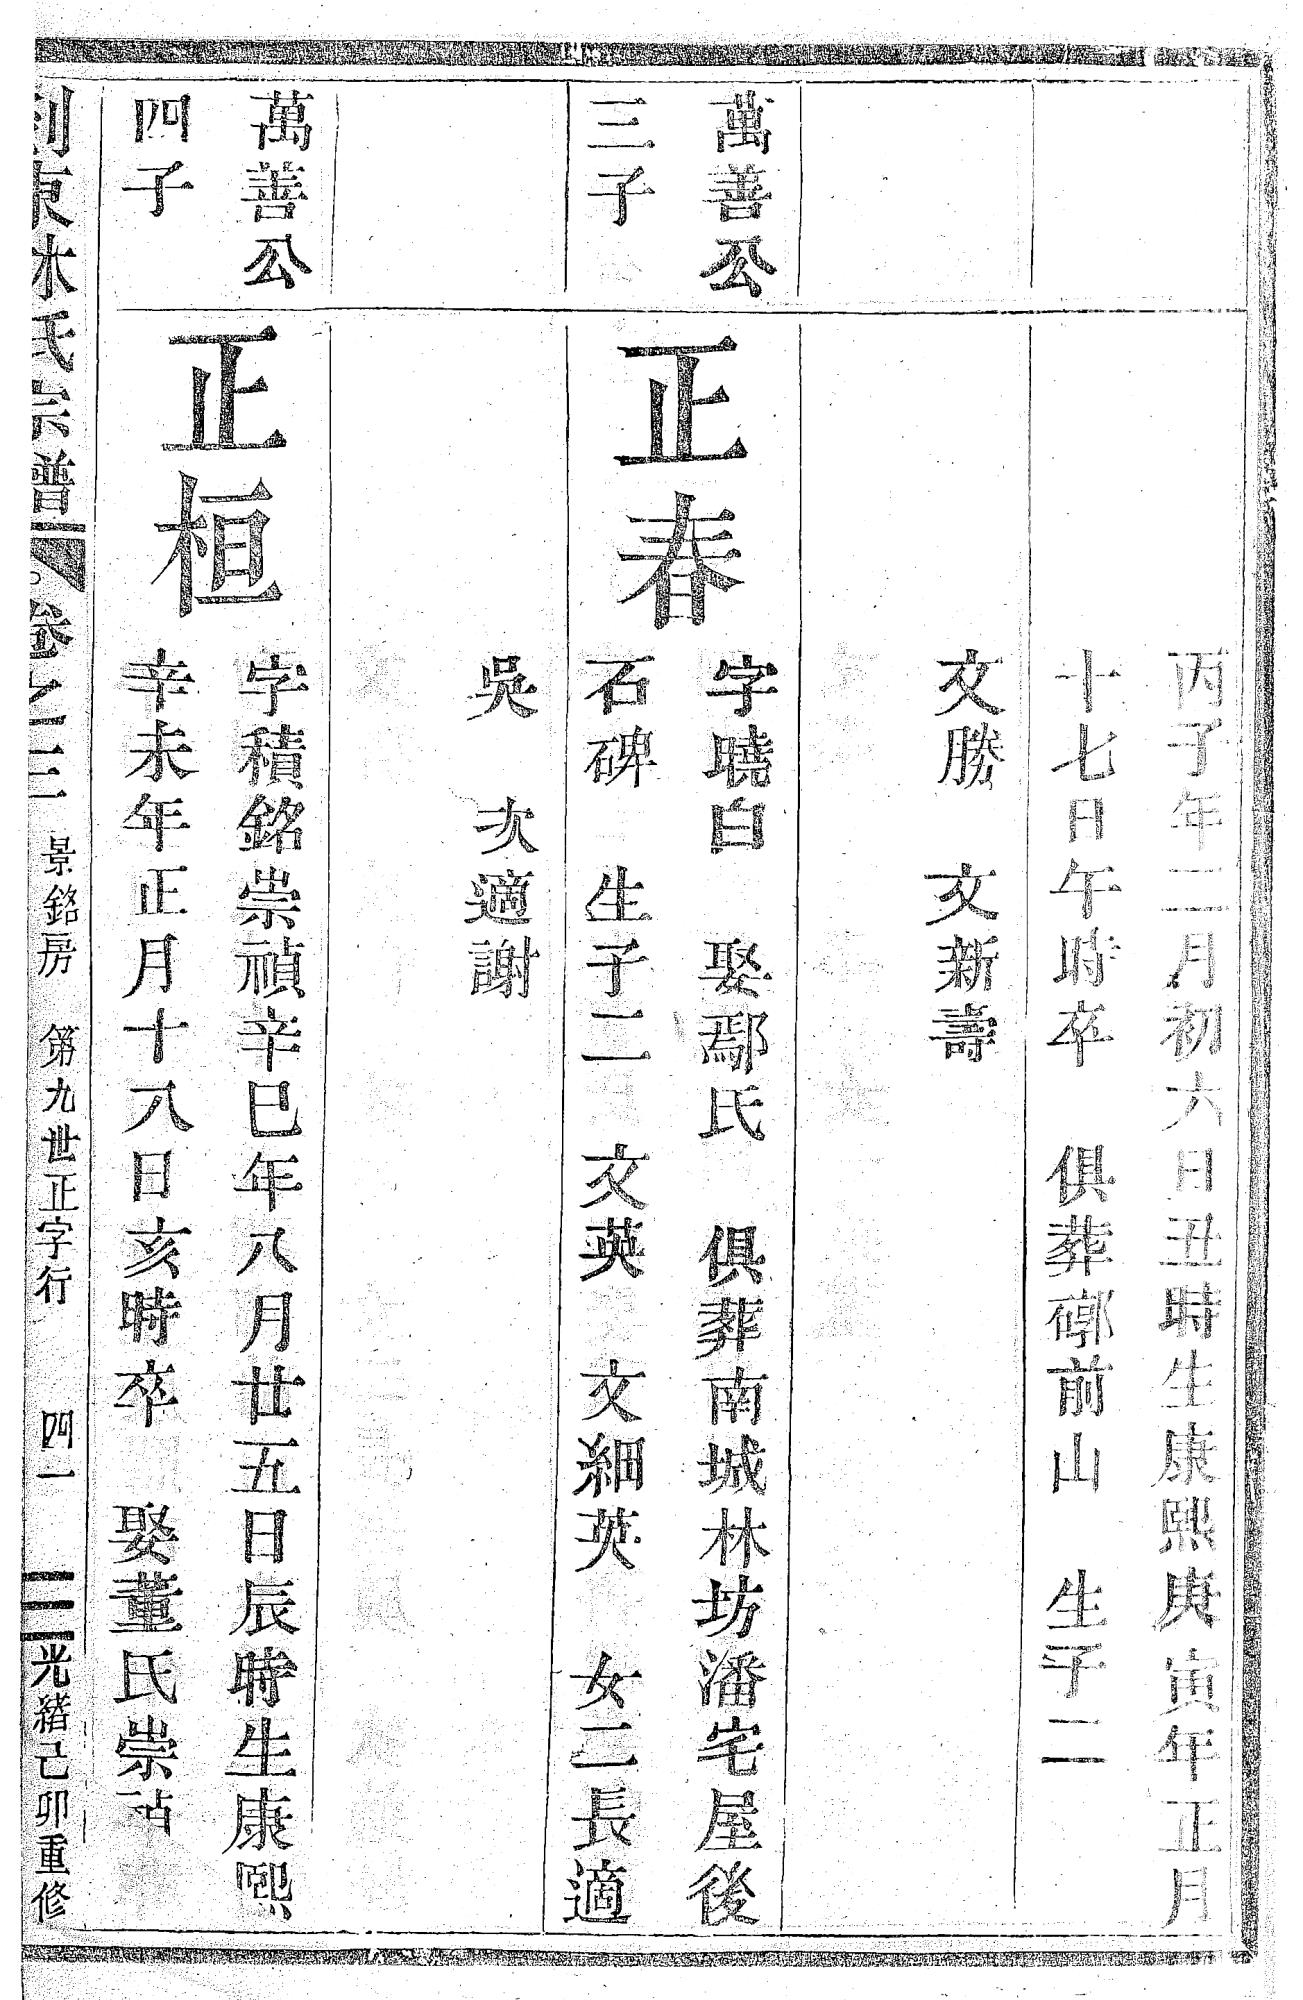 丙子年二月初六日丑時生康熙庚寅年正月
十七日午時卒　俱葬𥕖前山　生子二
文勝　文新壽
萬善公
三子
正春
字曉白　娶鄢氏　俱葬南城林坊潘宅屋後
石碑　生子二　文英　文細英　女二長適
吳　次適謝
萬善公
四子
正桓
字積銘崇禎辛巳年八月廿五日辰時生康熙
辛未年正月十八日亥時卒　娶董氏崇禎
東林氏宗譜　卷之三　景銘房　第九世正字行　四一　光緒己卯重修